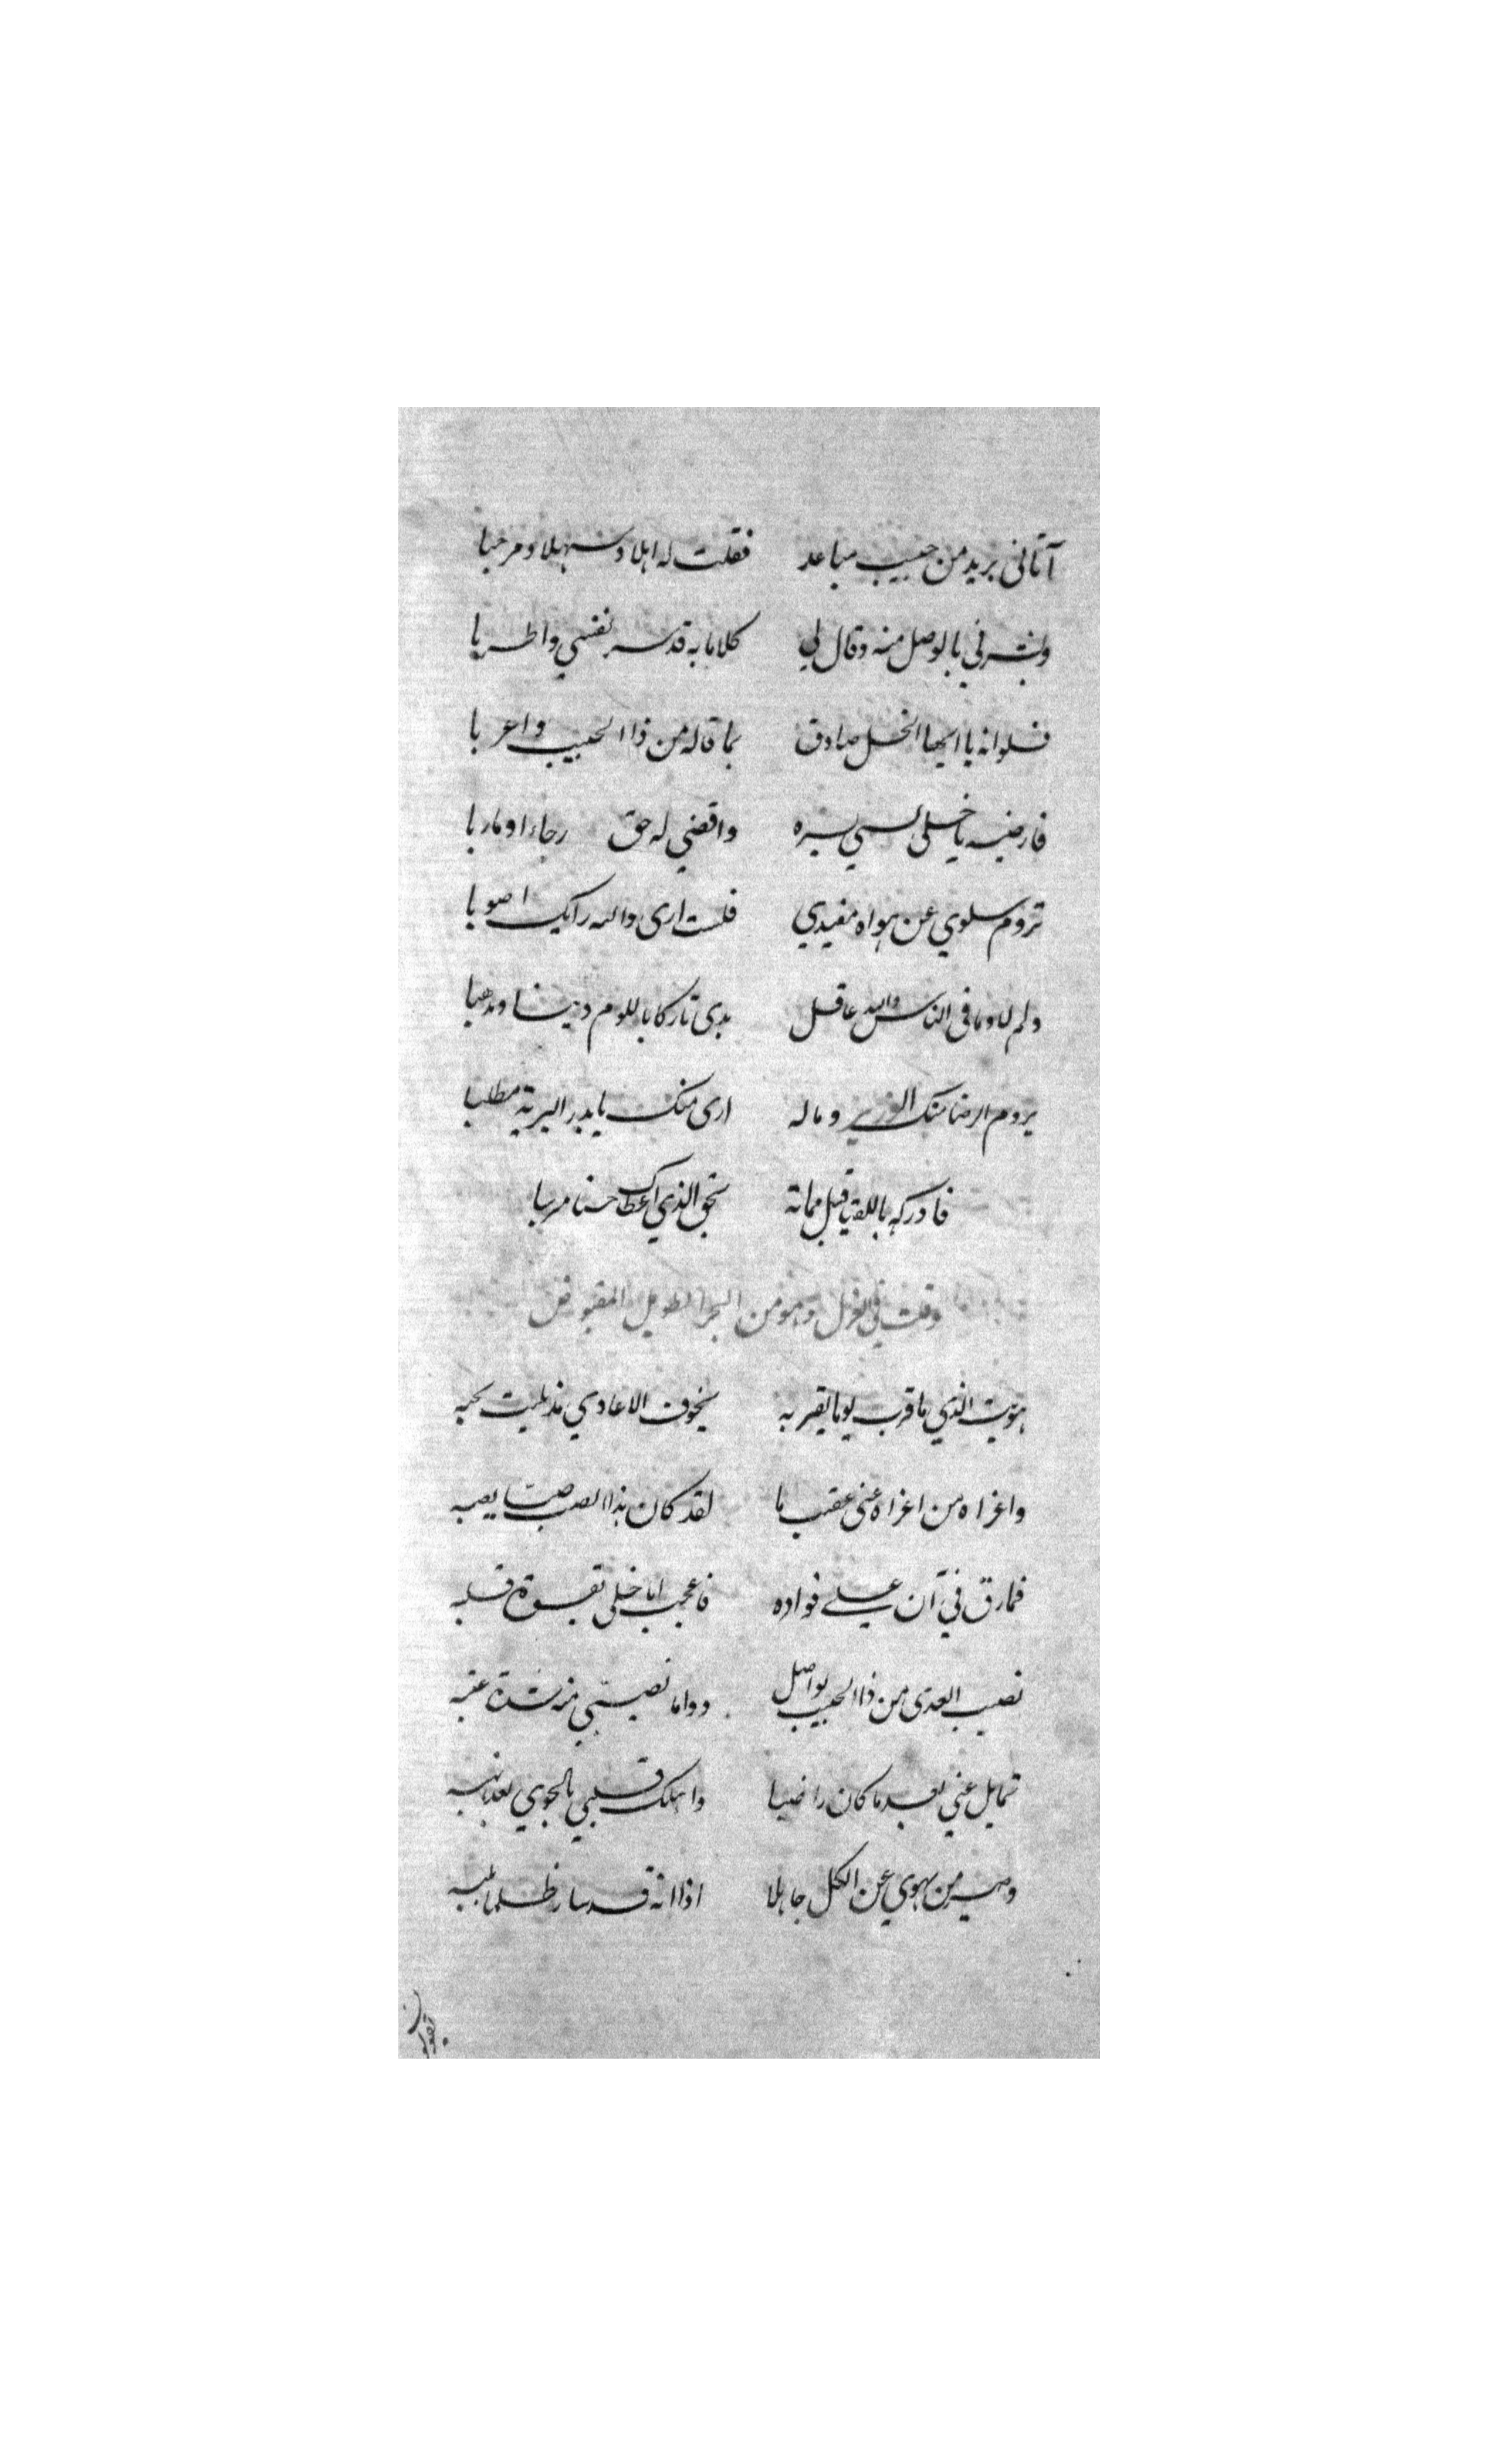 آتاني بريد من حبيب مباعد فقلت له اهلا وسهلا ومرحبا
وبشرني بالوصل منه وقال لي كلاما به قد سر نفسي واطربا
فلوانه يا ايها الخل صادق بما قاله من ذا الحبيب واعربا
فارضيه يا خلي بسره واقضي له حق رجاء او ماربا
تروم سلوي عن هواه مفيدي فلست ارى والله رايك اصوبا
ولم وما في الناس والله عاقل بدى تاركا باللوم دينا ومذهبا
يروم الرضا منك الوزير وماله ارى منك يا بدر البرية مطلبا
فادركه باللقيا قبل مماته بحق الذي اعطاك حسنا
وقلت في الغزل وهو من البحر الطويل المقبوض
هويت الذي ما قرب يوما بقربه بخوف الاعادي مذ بليت بحبه
واغراه من اغراه عني عقيب ما لقد كان هذا الصب صبّا بصبه
فمارق في آن علي فواده فاعجب اما خلي بقسوة قلبه
نصيب العدى من ذا الحبيب تواصل دواما نصيبي منه شدة عتبه
تمايل عني بعد ما كان راضيا واهلك قلبي بالجوي بعد
وصير من يهوي عن الكل جاهلا اذا انه قد سار ظلما بلبه